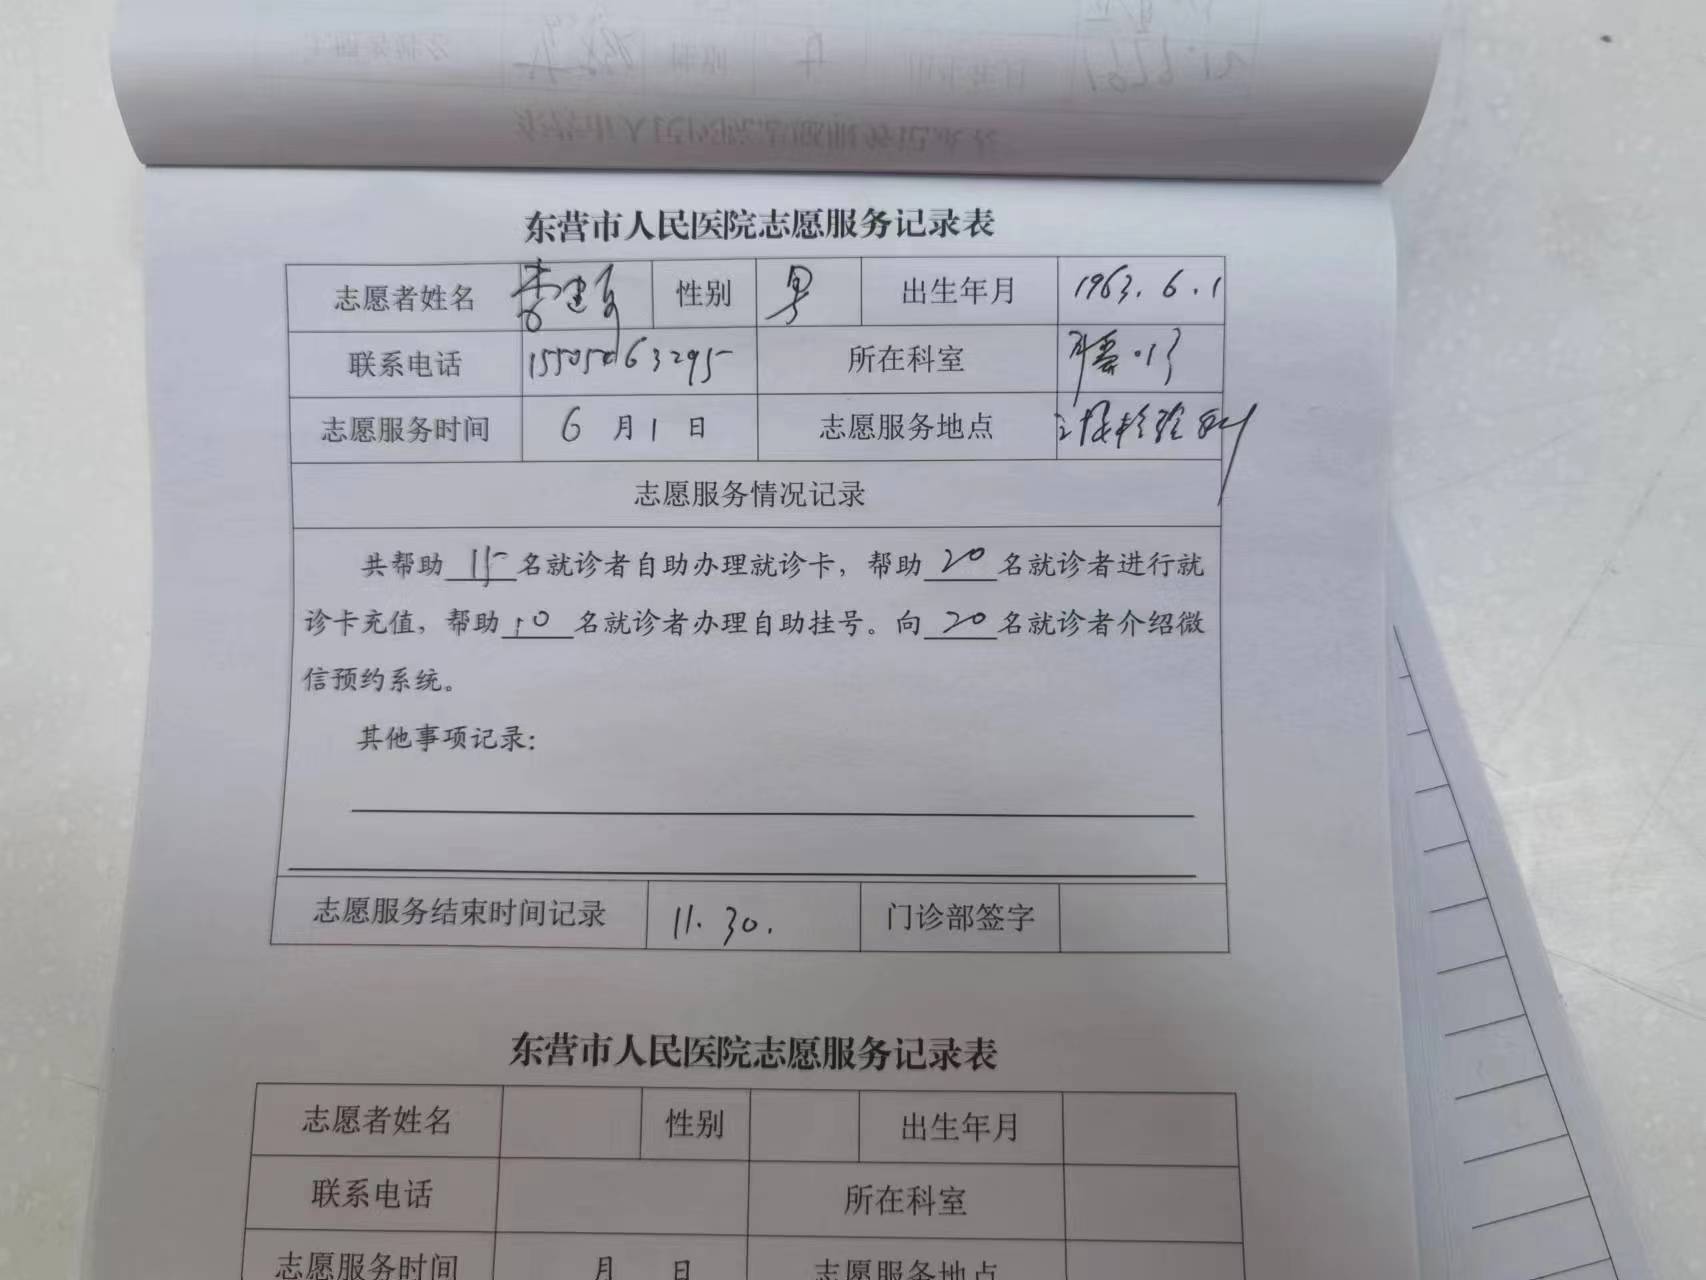 东营市人民医院志愿服务记录表
志愿者姓名 李建 性别 男 出生年月 1963.6.1
联系电话 15505463295 所在科室
志愿服务时间 6月1日 志愿服务地点
志愿服务情况记录
共帮助15名就诊者自助办理就诊卡，帮助20名就诊者进行就
诊卡充值，帮助10名就诊者办理自助挂号。向20名就诊者介绍微
信预约系统。
其他事项记录：
志愿服务结束时间记录 11.30. 门诊部签字
东营市人民医院志愿服务记录表
志愿者姓名 性别 出生年月
联系电话 所在科室
志愿服务时间 月 日 志愿服务地点